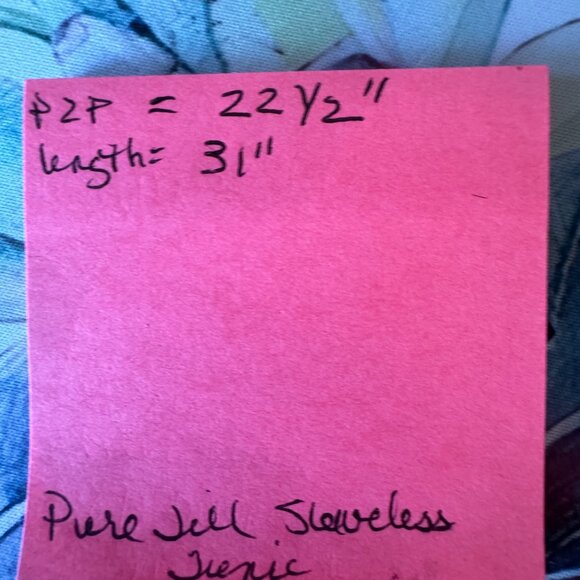 P2P = 22 1/2"
length= 31"
Pure Jill Sleeveless
Tunic